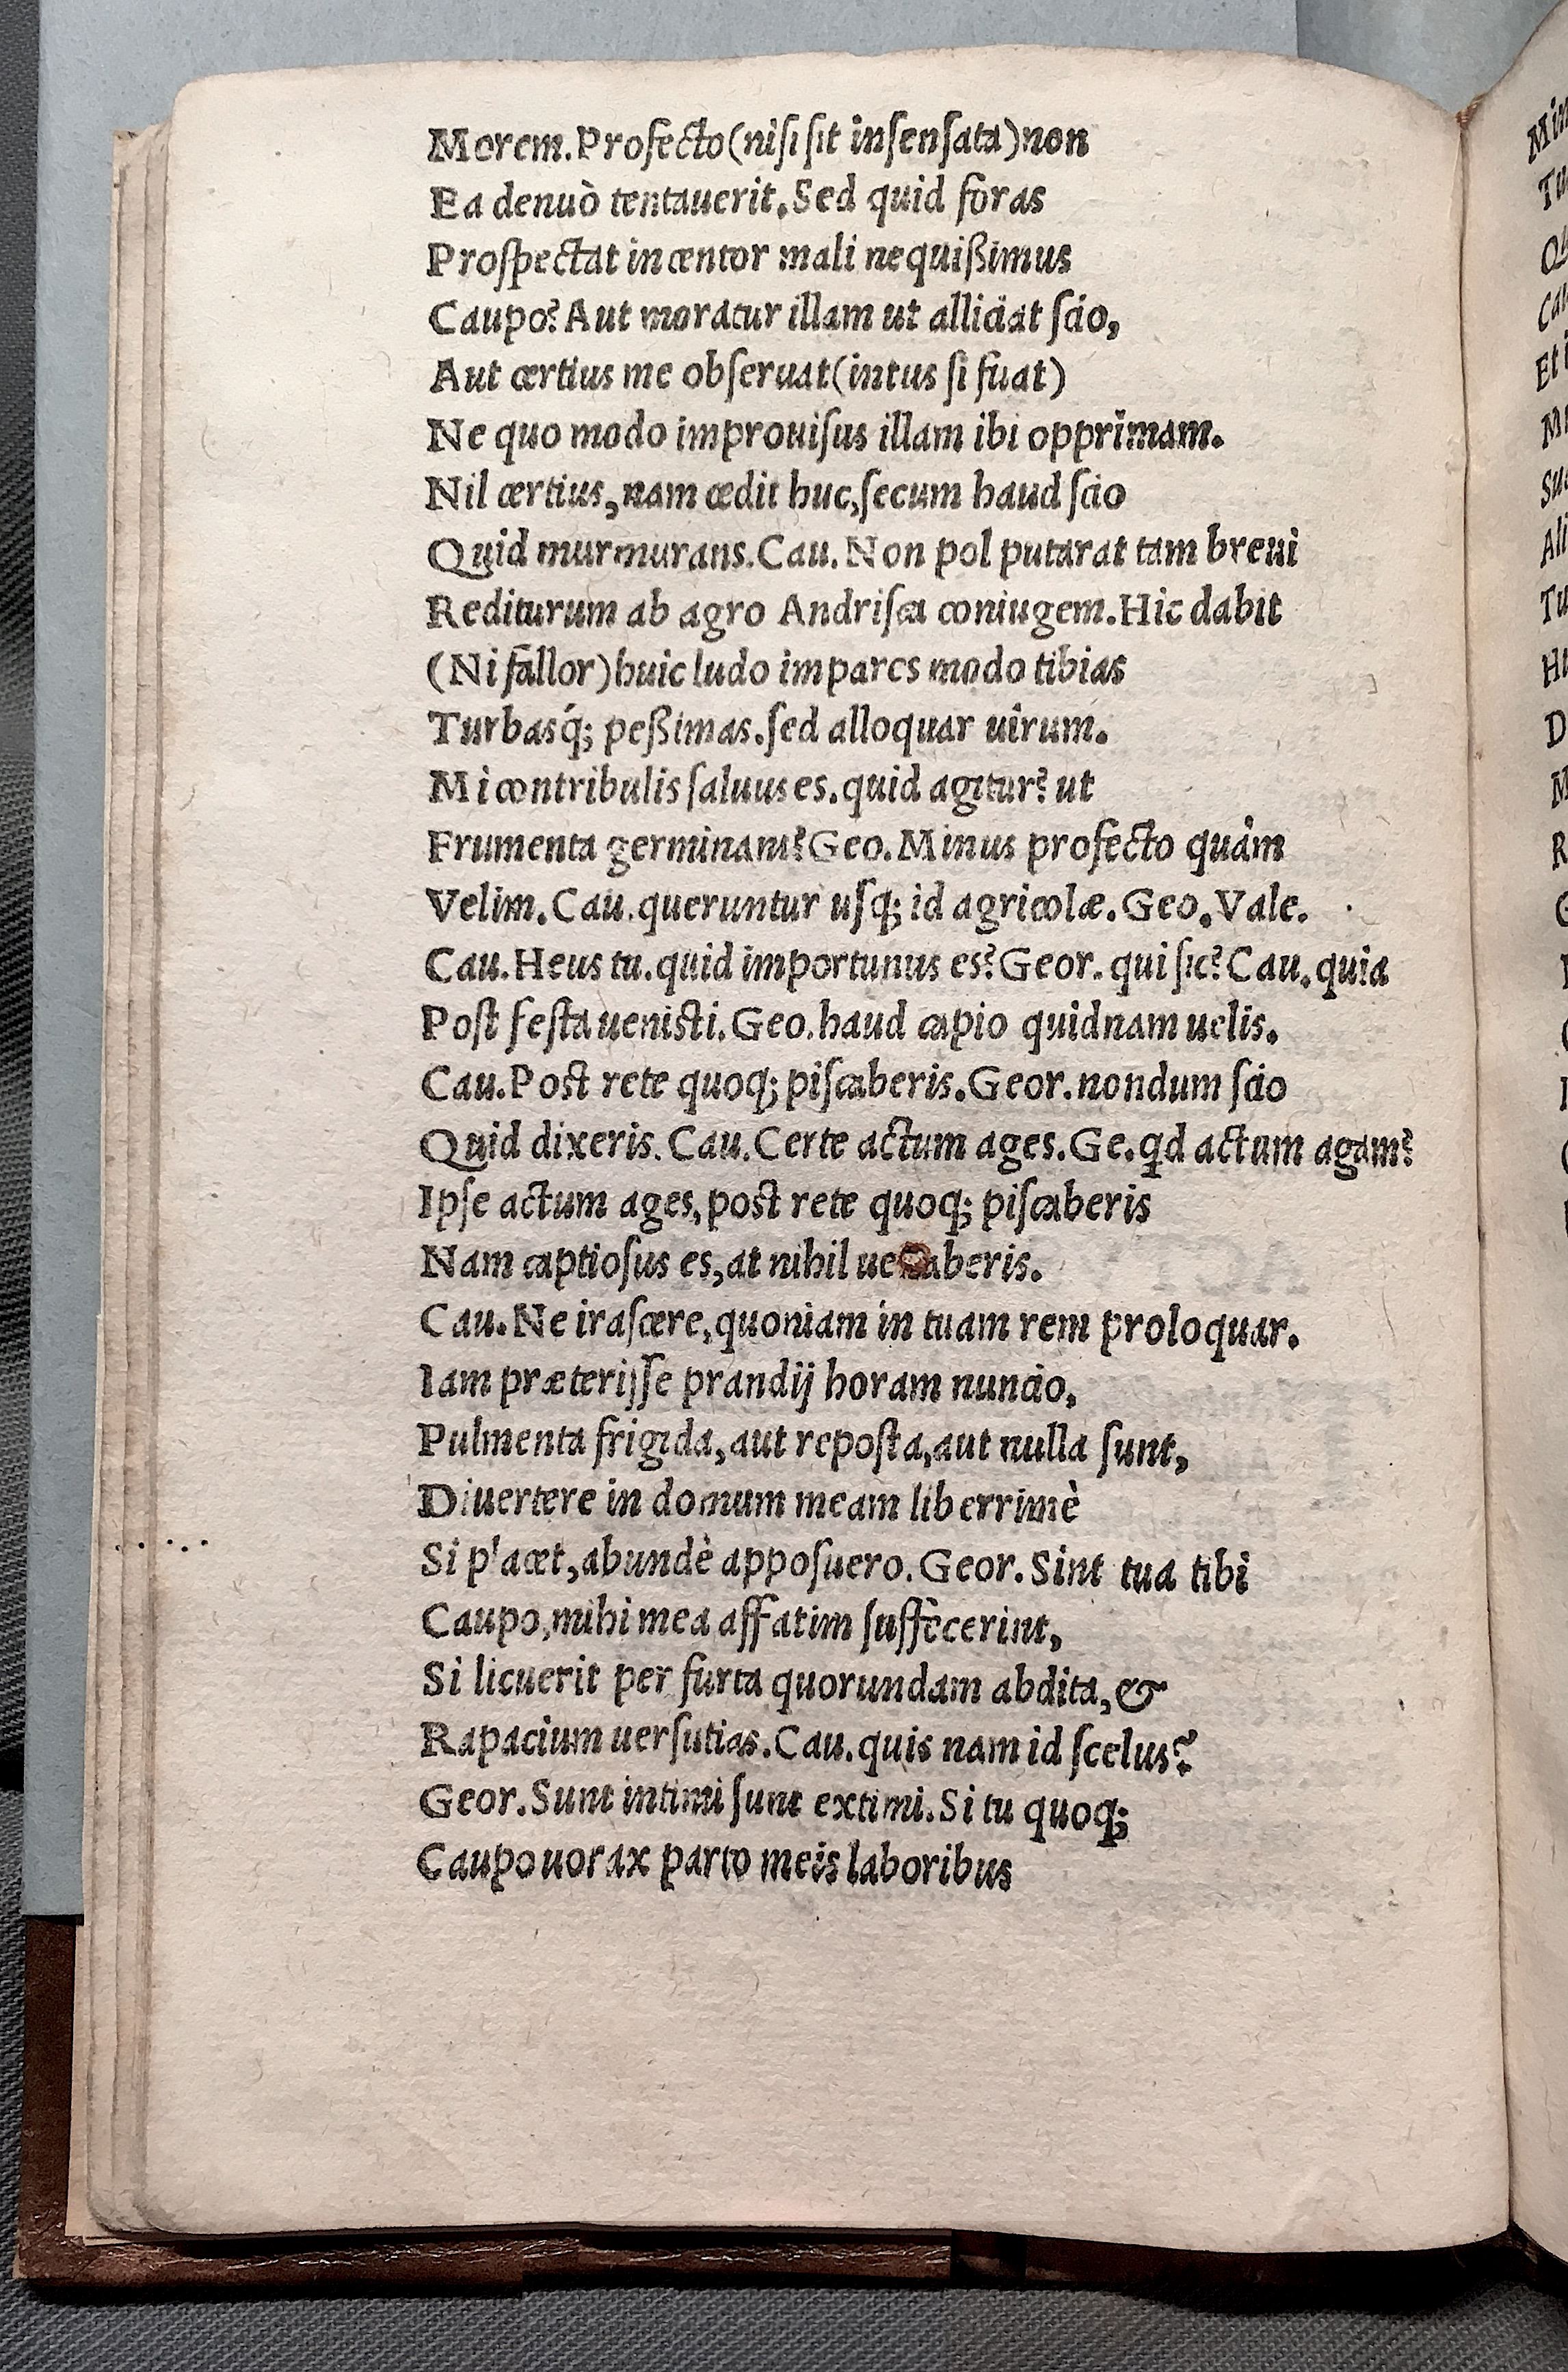 Morem.Profecto(niſi ſit inſenſata)non
Ea denuò tentauerit.Sed quid foras
Proſpectat incentor mali nequißimus
Caupo? Aut moratur illam ut alliciat ſcio,
Aut certius me obſeruat(intus ſi fuat)
Ne quo modo improuiſus illam ibi opprimam.
Nil certius,nam cedit huc,ſecum haud ſcio
Quid murmurans.Cau. Non pol putarat tam breui
Rediturum ab agro Andriſca coniugem.Hic dabit
(Ni fallor)huic ludo impares modo tibias
Turbasq́; peßimas.ſed alloquar uirum.
Mi contribulis ſaluus es.quid agitur? ut
Frumenta germinant?Geo.Minus profecto quàm
Velim.Cau.queruntur uſq; id agricolæ.Geo.Vale.
Cau.Heus tu.quid importunus es?Geor. qui ſic?Cau.quia
Poſt feſta ueniſti.Geo.haud capio quidnam uelis.
Cau.Poſt rete quoq; piſcaberis.Geor.nondum ſcio
Quid dixeris. Cau.Certe actum ages.Ge.qd actum agam?
Ipſe actum ages,poſt rete quoq; piſcaberis
Nam captioſus es,at nihil uenaberis.
Cau.Ne iraſcere,quoniam in tuam rem proloquar.
Iam præterijſſe prandij horam nuncio,
Pulmenta frigida,aut repoſta,aut nulla ſunt,
Diuertere in domum meam liberrimè
Si placet,abundè appoſuero.Geor.Sint tua tibi
Caupo,mihi mea affatim ſuffecerint,
Si licuerit per furta quorundam abdita,&
Rapacium uerſutias.Cau.quis nam id ſcelus?
Geor.Sunt intimi ſunt extimi.Si tu quoq;
Caupo uorax parto meis laboribus